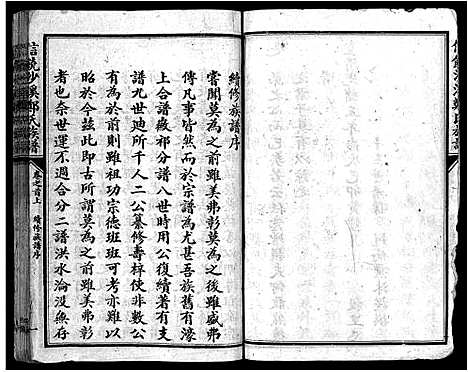 續修族譜序
嘗聞莫為之前雖美弗彰莫為之後雖盛弗
傳凡事皆然而於宗譜為尤甚吾族舊有濠
上合譜蔽祁分譜八世時用公復續著有支
譜九世迪所千人二公纂修壽梓使非數公
有為於前則雖祖功宗德班班可考亦難以
昭於今茲此即古所謂莫為之前雖美弗彰
者也奈世運不遇合分二譜洪水淪沒無存
信饒沙溪鄭氏族譜
卷之首上
續修族譜序
一